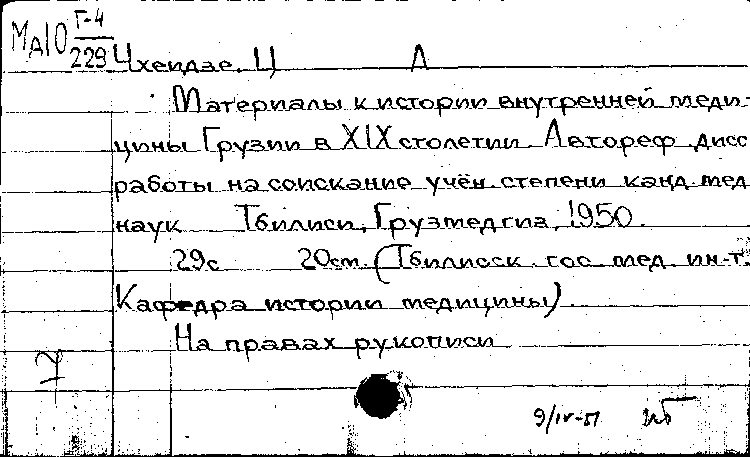 МД10 Г-4
229
Чхеидзе, Ц А
Материалы к истории внутренней меди-
цины Грузии в XIX столетии. Автореф дисс
работы на соискание учён. степени канд. мед
наук Тбилиси, Грузмедгиз, 1950.
29с 20см. (Тбилисск. гос. мед. ин-т.
Кафедра истории медицины).
На правах рукописи
7
9/IV-51